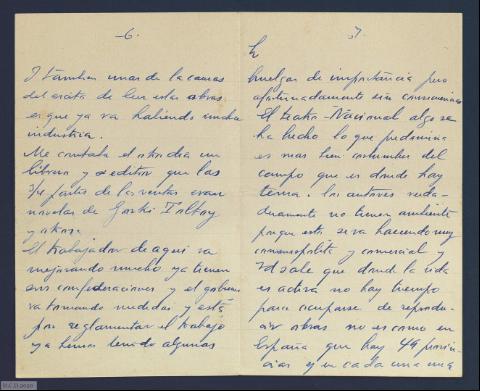 -6.
I tambien una de la causas
del exito de leer estas obras
es que ya va habiendo mucha
industria.
Me contaba el otro dia un
librero y editor que las
3/4 partes de las ventas eran
novelas de Gorki Tolstoy
y otros.
El trabajador de aqui va
mejorando mucho ya tienen
sus confederaciones y el gobierno
va tomando medidas y está
por reglamentar el trabajo
y a hemos tenido algunas
7.
huelgas de importancia pero
afortunadamente sin consecuencias
El teatro Nacional algo se
ha hecho lo que predomina
es mas bien costumbres del
campo que es donde hay
tema. los autores
no tienen ambiente
porque esto se va haciendo muy
cosmopolita y comercial y
Vd sabe que donde la vida
es activa no hay tiempo
para ocuparse de
obras no es como en
España que hay 49 provin-
cias y en cada una una